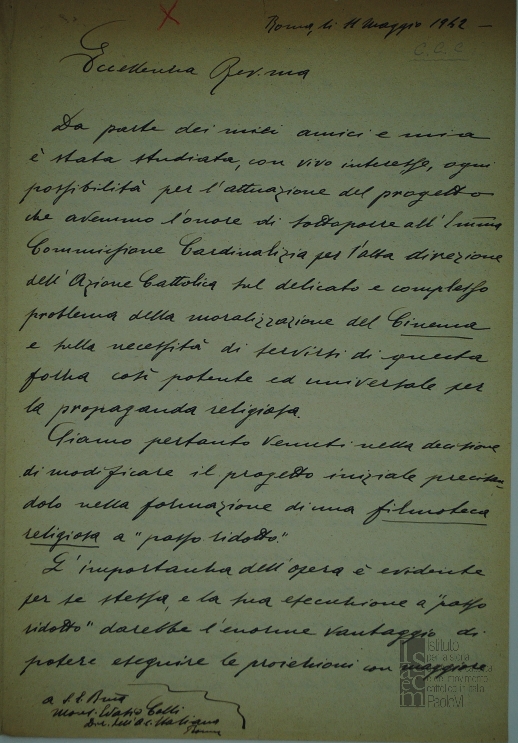 Roma, li 11 Maggio 1942 -
C.C.C.
Eccellenza Rev.ma
Da parte dei miei amici e mia
è stata studiata, con vivo interesse, ogni
possibilità per l'attuazione del progetto
che avemmo l'onore di sottoporre all'Emma
Commissione Cardinalizia per l'alta direzione
dell'Azione Cattolica sul delicato e complesso
problema della moralizzazione del Cinema
e sulla necessità di servirsi di questa
forza così potente ed universale per
la propaganda religiosa.
Siamo pertanto venuti nella decisione
di modificare il progetto iniziale precisan
dolo nella formazione di una filmoteca
religiosa a "passo ridotto."
L'importanza dell'opera è evidente
per se stessa, e la sua esecuzione a "passo
ridotto" darebbe l'enorme vantaggio di
potere eseguire le proiezioni con maggiore
a S.E.
Mons. Evasio Colli
Dir. dell'Az. Italiana
Roma
Istituto
per la storia
dell'Azione cattolica
e del movimento
cattolico in Italia
Paolo VI
isacem